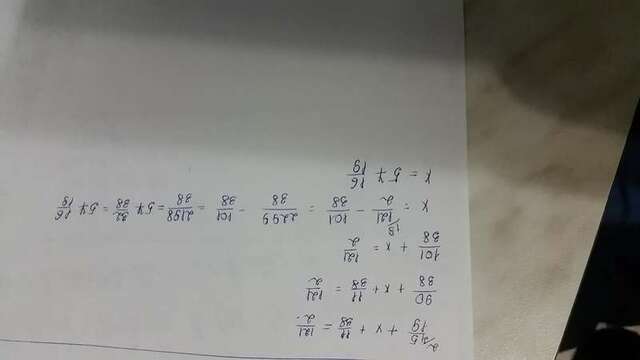 45/19 ² + x + 11/38 = 121/2
90/38 + x + 11/38 = 121/2
101/38 + x = 121/2
x = 121/2 ¹⁹ - 101/38 = 2299/38 - 101/38 = 2198/38 = 57 32/38 = 57 16/19
x = 57 16/19